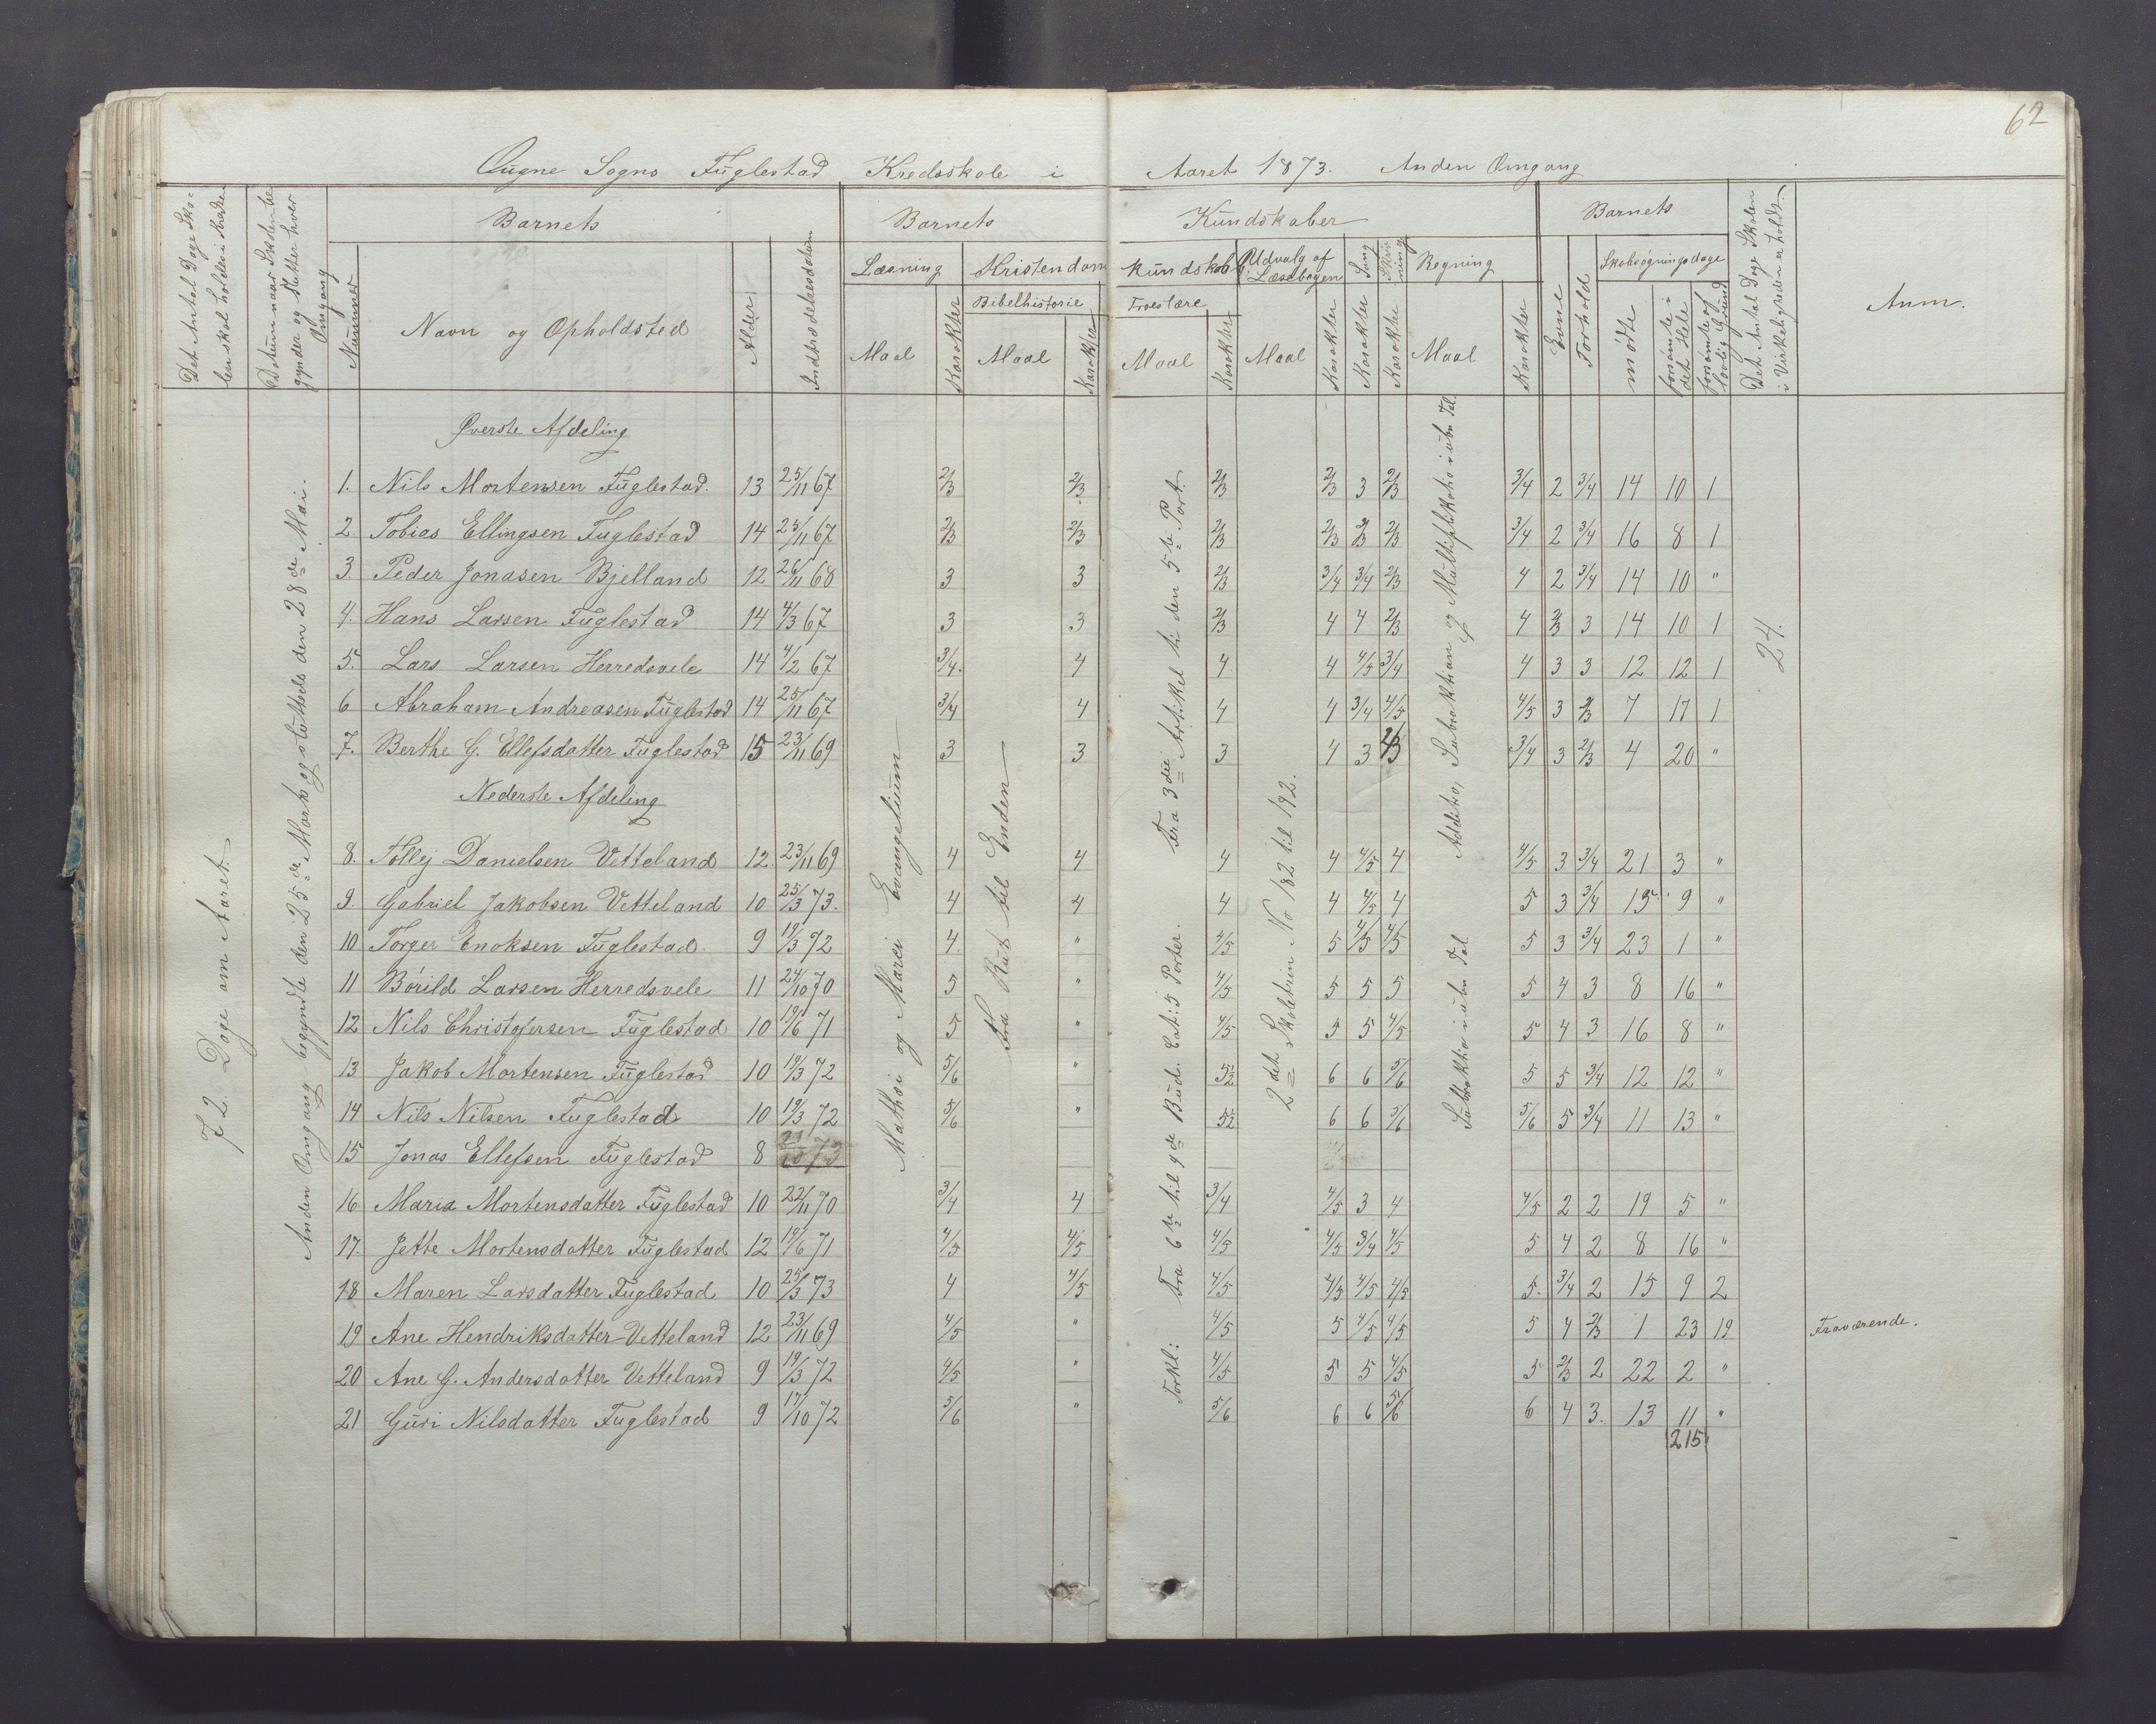 62
Ougne Sogns Fuglestad Kredsskole i Aaret 1873. Anden Omgang
Det Antal Dage Skolen skal holdes i Kredsen
Datum naar Skolen begynder og slutter hver Omgang
Barnets
Nummer
Navn og Opholdsted
Alder
Indtrædelsesdatum
Barnets Kundskaber
Læsning
Maal
Karakter
Kristendomskundskab
Bibelhistorie
Maal
Karakter
Troeslære
Maal
Karakter
Udvalg af Læsebogen
Maal
Karakter
Sang
Karakter
Skrivning
Karakter
Regning
Maal
Karakter
Barnets
Evne
Forhold
Skolesøgningsdage
mødte
forsømte i det Hele
forsømte af lovlig Grund
Det Antal Dage Skolen i Virkeligheden er holdt.
Anm.
72 Dage om Aaret.
Anden Omgang begyndte den 25de Marts og sluttedes den 28de Mai.
Mathæi og Marci Evangelium
Fra Rut til Enden
Fra 3die Artikel til den 5te Part.
Forkl: Fra 6te til 9de Bud. Cat: 5 Parter.
2det Skoletrin No 182 til 192.
Addition, Subtraktion og Multiplikation i ubn Tal.
Subtraktion i ubn Tal
24.
Øverste Afdeling
1. Nils Mortensen Fuglestad. 13 25/11 67 2/3 2/3 2/3 2/3 3 2/3 3/4 2 3/4 14 10 1
2 Tobias Ellingsen Fuglestad 14 25/11 67 2/3 2/3 2/3 2/3 2/3 2/3 3/4 2 3/4 16 8 1
3 Peder Jonasen Bjelland 12 26/11 68 3 3 2/3 3/4 3/4 2/3 4 2 3/4 14 10 "
4. Hans Larsen Fuglestad 14 4/3 67 3 3 2/3 4 4 2/3 4 2/3 3 14 10 1
5. Lars Larsen Herredsvele 14 4/2 67 3/4. 4 4 4 4/5 3/4 4 3 3 12 12 1
6 Abraham Andreasen Fuglestad 14 25/11 67 3/4 4 4 4 3/4 4/5 4/5 3 2/3 7 17 1
7. Berthe G. Ellefsdatter Fuglestad 15 23/11 69 3 3 3 4 3 2/3 3/4 3 2/3 4 20 "
Nederste Afdeling
8. Tollej Danielsen Vetteland 12 23/11 69 4 4 4 4 4/5 4 4/5 3 3/4 21 3 "
9. Gabriel Jakobsen Vetteland 10 25/3 73. 4 4 4 4 4/5 4 5 3 3/4 15 9 "
10 Torger Enoksen Fuglestad. 9 19/3 72 4 " 4/5 5 4/5 4/5 5 3 3/4 23 1 "
11 Børild Larsen Herredsvele 11 24/10 70 5 " 4/5 5 5 5 5 4 3 8 16 "
12 Nils Christofersen Fuglestad 10 19/6 71 5 " 4/5 5 5 4/5 5 4 3 16 8 "
13 Jakob Mortensen Fuglestad 10 19/3 72 5/6 " 5½ 6 6 5/6 5 5 3/4 12 12 "
14 Nils Nilsen Fuglestad 10 19/3 72 5/6 " 5½ 6 6 5/6 5/6 5 3/4 11 13 "
15 Jonas Ellefsen Fuglestad 8 73
16 Maria Mortensdatter Fuglestad 10 22/11 70 3/4 4 3/4 4/5 3 4 4/5 2 2 19 5 "
17. Jette Mortensdatter Fuglestad 12 19/6 71 4/5 4/5 4/5 4/5 3/4 4/5 5 4 2 8 16 "
18 Maren Larsdatter Fuglestad 10 25/3 73 4 4/5 4/5 4/5 4/5 4/5 5. 3/4 2 15 9 2
19 Ane Hendriksdatter Vetteland 12 23/11 69 4/5 " 4/5 5 4/5 4/5 5 4 2/3 1 23 19 Fraværende.
20 Ane G. Andersdatter Vetteland 9 19/3 72 4/5 " 4/5 5 5 4/5 5 2/3 2 22 2 "
21 Guri Nilsdatter Fuglestad 9 17/10 72 5/6 " 5/6 6 6 5/6 6 4 3. 13 11 "
215